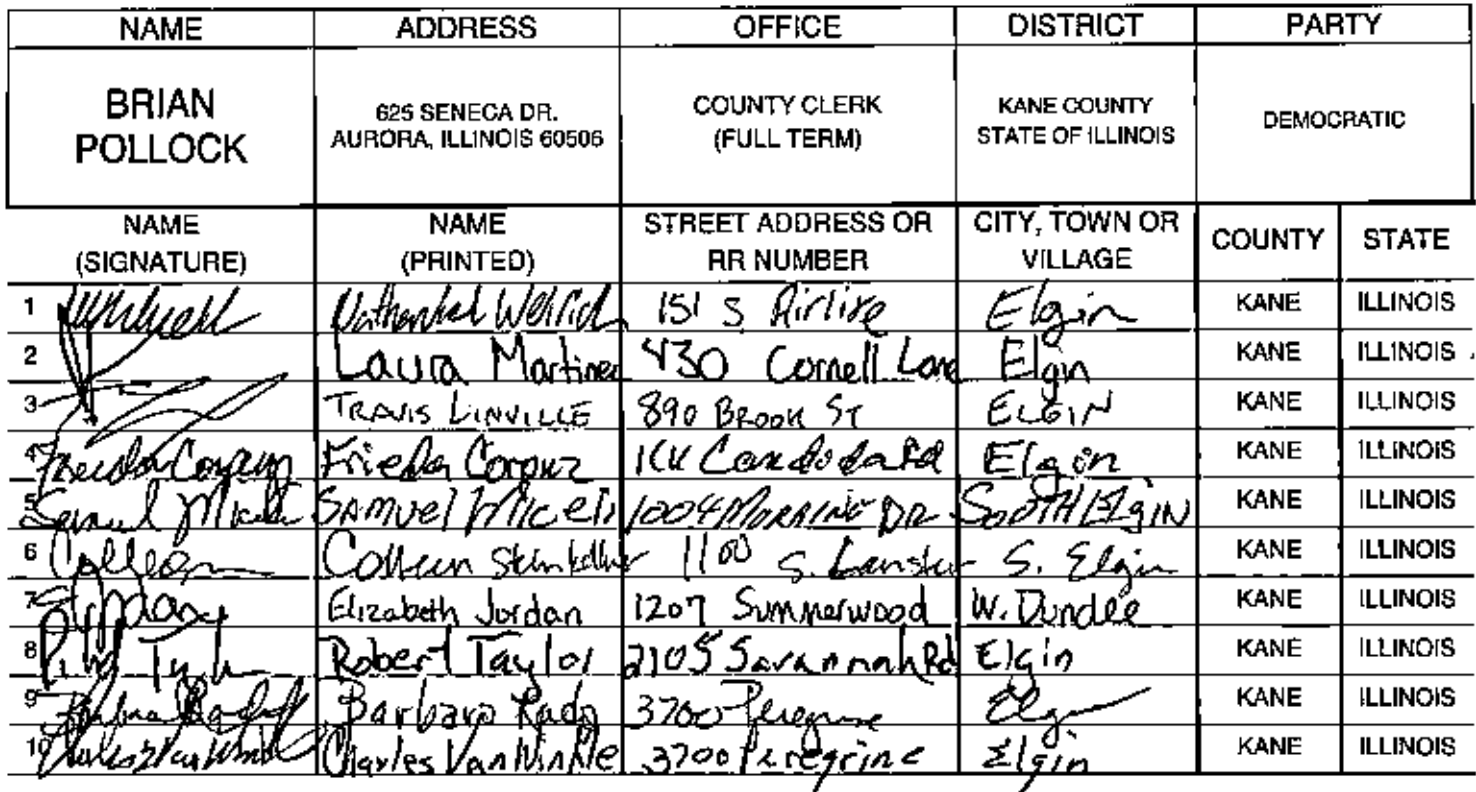 NAME ADDRESS OFFICE DISTRICT PARTY
BRIAN POLLOCK 625 SENECA DR. AURORA, ILLINOIS 60506 COUNTY CLERK (FULL TERM) KANE COUNTY STATE OF ILLINOIS DEMOCRATIC
NAME (SIGNATURE) NAME (PRINTED) STREET ADDRESS OR RR NUMBER CITY, TOWN OR VILLAGE COUNTY STATE
1 151 S Elgin KANE ILLINOIS
2 Laura Martinez 430 Cornell Lane Elgin KANE ILLINOIS
3 TRAVIS LINVILLE 890 BROOK ST ELGIN KANE ILLINOIS
4 Frieda Elgin KANE ILLINOIS
5 Samuel Miceli SAMUEL Miceli 1004 MORNING DR SOUTH ElgIN KANE ILLINOIS
6 Colleen Colleen 1100 S. S. Elgin KANE ILLINOIS
7 Elizabeth Jordan 1207 Summerwood W. Dundee KANE ILLINOIS
8 Robert Taylor 2105 Savannah Rd Elgin KANE ILLINOIS
9 Barbara 3700 Peregrine Elgin KANE ILLINOIS
10 Charles VanWinkle Charles VanWinkle 3700 Peregrine Elgin KANE ILLINOIS